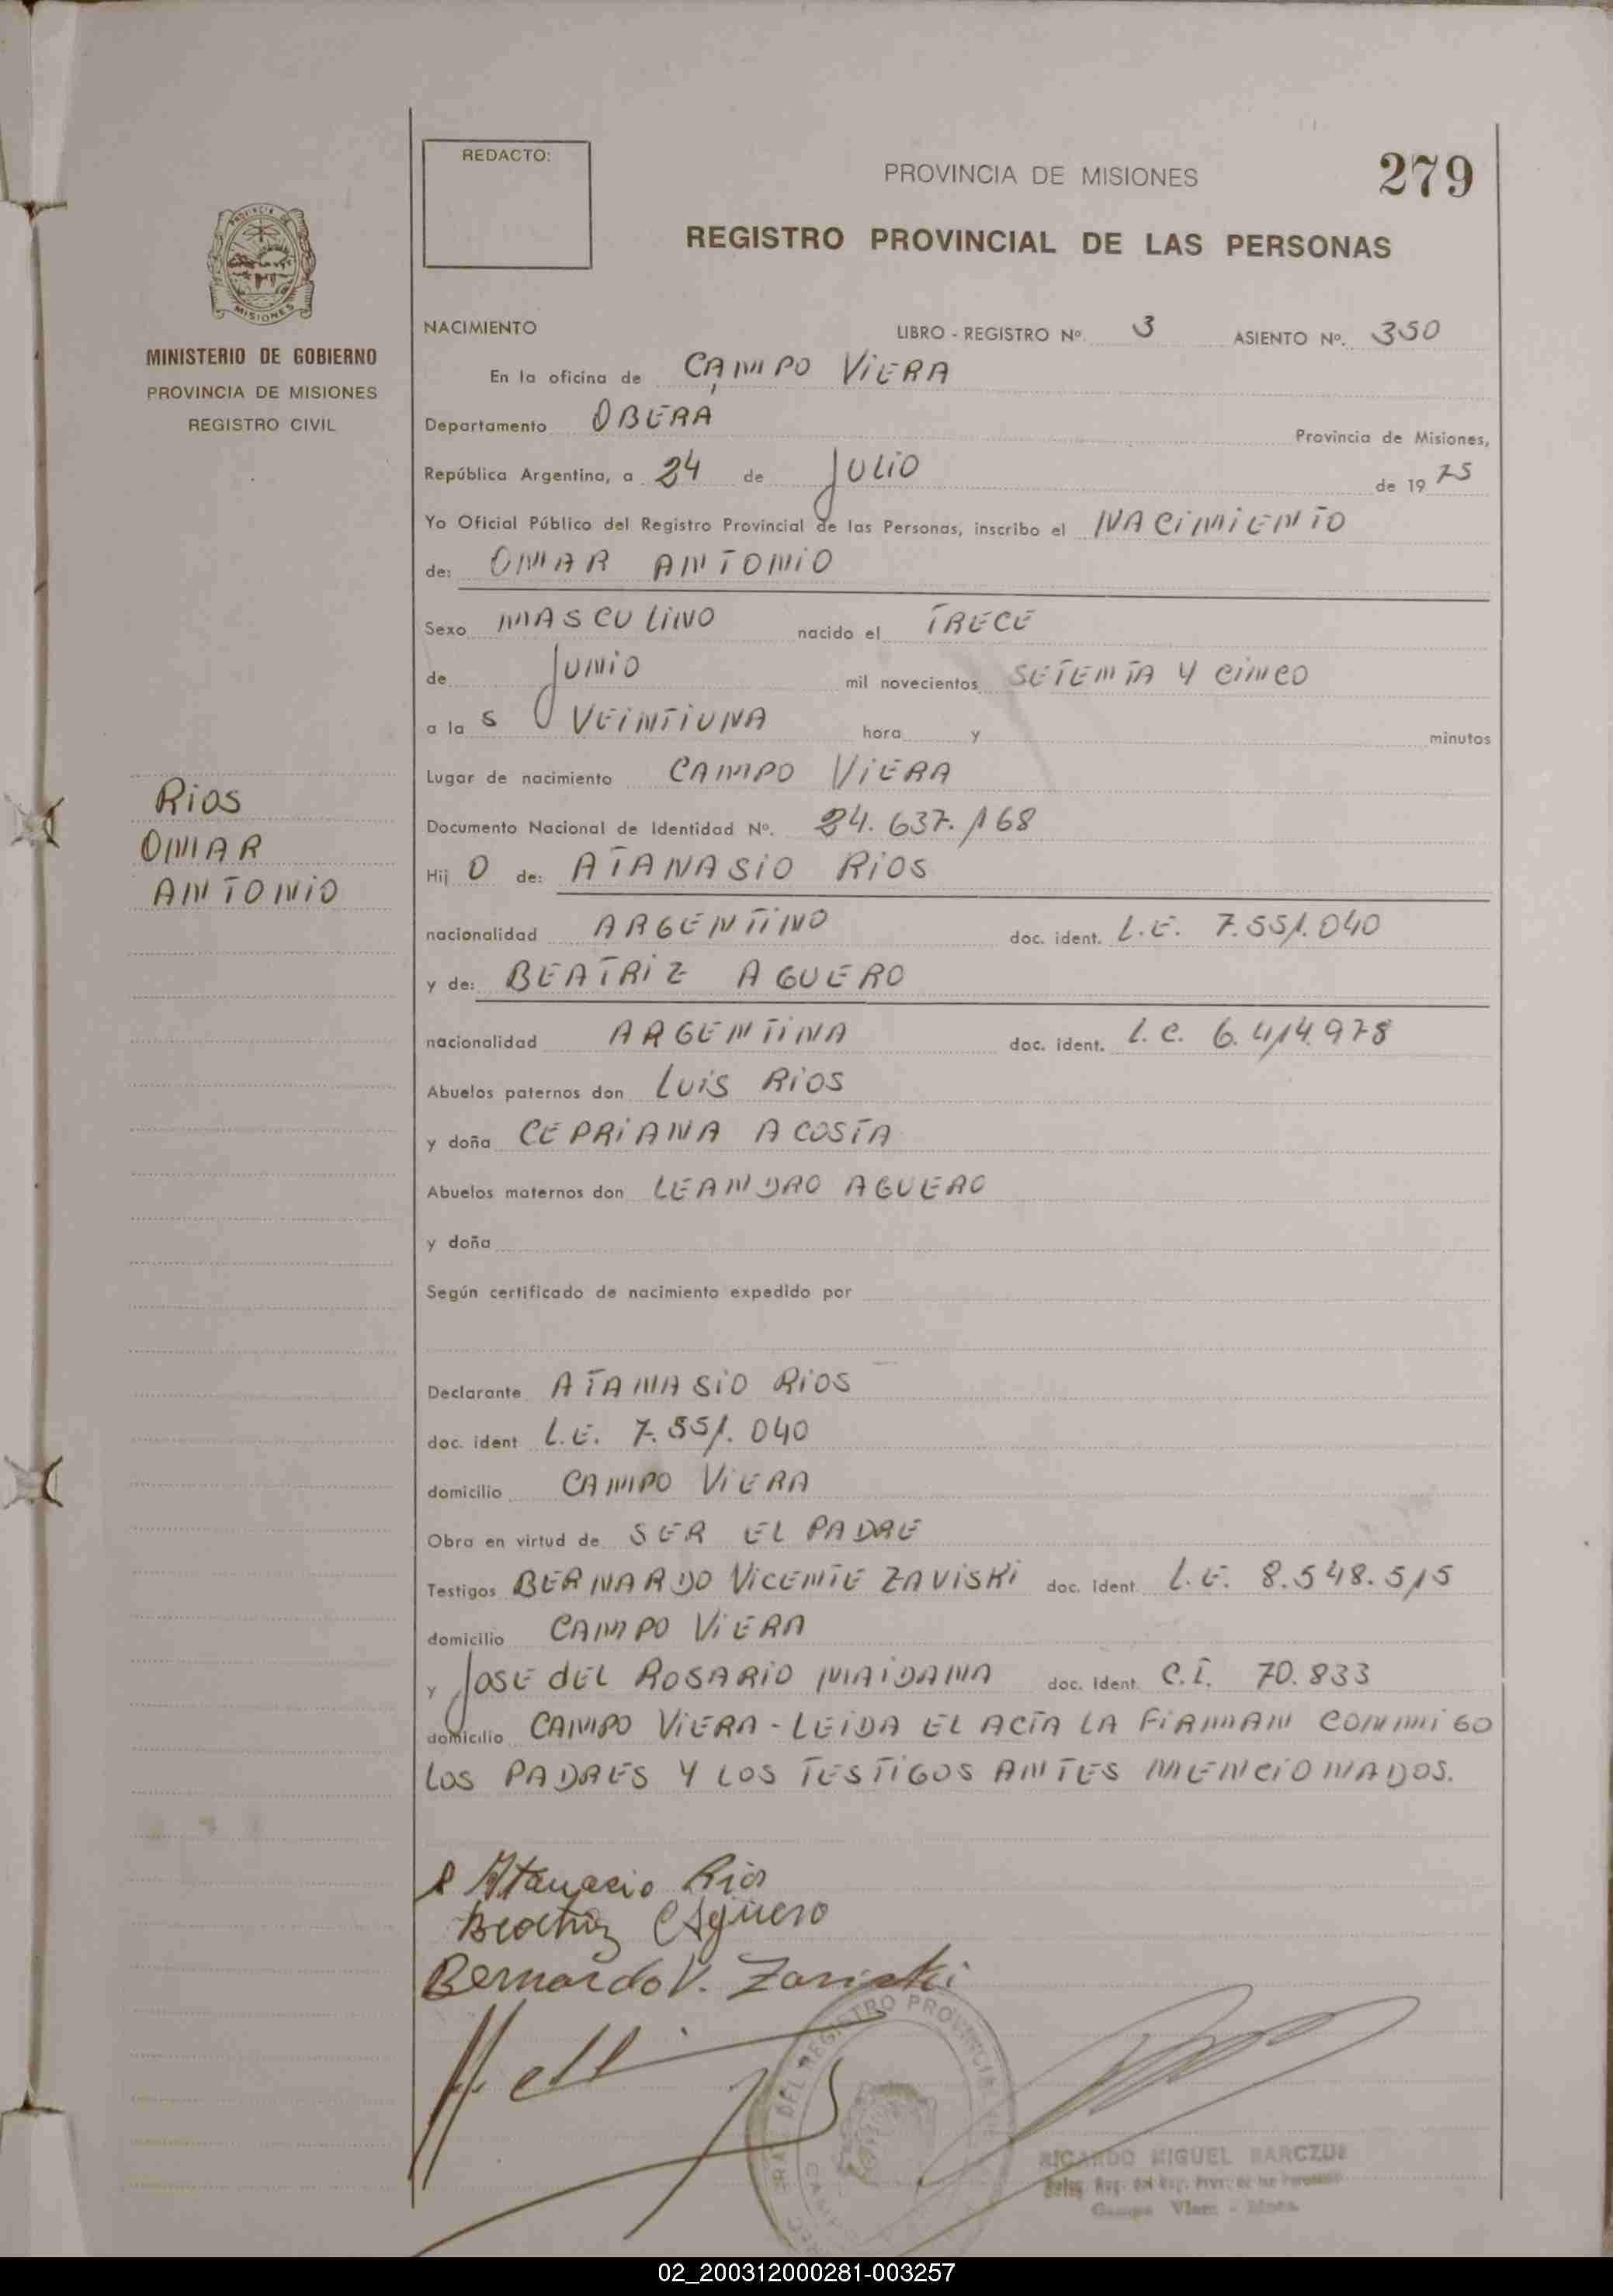 REDACTO:
PROVINCIA DE MISIONES
279
REGISTRO PROVINCIAL DE LAS PERSONAS
PROVINCIA DE
MISIONES
MINISTERIO DE GOBIERNO
PROVINCIA DE MISIONES
REGISTRO CIVIL
NACIMIENTO LIBRO - REGISTRO Nº. 3 ASIENTO Nº. 350
En la oficina de CAMPO VIERA
Departamento OBERA Provincia de Misiones,
República Argentina, a 24 de JULIO de 19 75
Yo Oficial Público del Registro Provincial de las Personas, inscribo el NACIMIENTO
de: OMAR ANTONIO
Sexo MASCULINO nacido el TRECE
de JUNIO mil novecientos SETENTA Y CINCO
a la S VEINTIUNA hora y minutos
Lugar de nacimiento CAMPO VIERA
Documento Nacional de Identidad Nº. 24.637.168
RIOS
OMAR
ANTONIO
Hij O de: ATANASIO RIOS
nacionalidad ARGENTINO doc. ident. L.E. 7.551.040
y de: BEATRIZ AGUERO
nacionalidad ARGENTINA doc. ident. L.C. 6.414.978
Abuelos paternos don LUIS RIOS
y doña CEPRIANA ACOSTA
Abuelos maternos don LEANDRO AGUERO
y doña
Según certificado de nacimiento expedido por
Declarante ATANASIO RIOS
doc. ident L.E. 7.551.040
domicilio CAMPO VIERA
Obra en virtud de SER EL PADRE
Testigos BERNARDO VICENTE ZAVISKI doc. ident. L.E. 8.548.515
domicilio CAMPO VIERA
y JOSE DEL ROSARIO MAIDANA doc. ident. C.I. 70.833
domicilio CAMPO VIERA - LEIDA EL ACTA LA FIRMAN CONMIGO
LOS PADRES Y LOS TESTIGOS ANTES MENCIONADOS.
Atanacio Rios
Beatriz Agüero
Bernardo V. Zaviski
DEL REGISTRO PROVINCIAL
RICARDO MIGUEL BARCZUK
Campo Viera - Mnes.
02_200312000281-003257